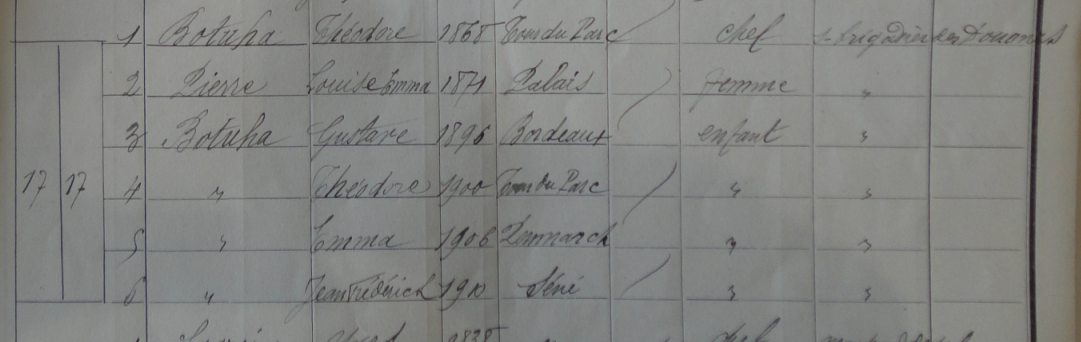 1 Botuha Théodore 1868 Tour du Parc chef s. brigadier des Douanes
2 Pierre Louise Emma 1871 Palais femme "
3 Botuha Gustave 1896 Bordeaux enfant "
17 17 4 " Théodore 1900 Tour du Parc " "
5 " Emma 1906 Penmarch " "
6 " Jean Frédérich 1910 Séné " "
1838 chef